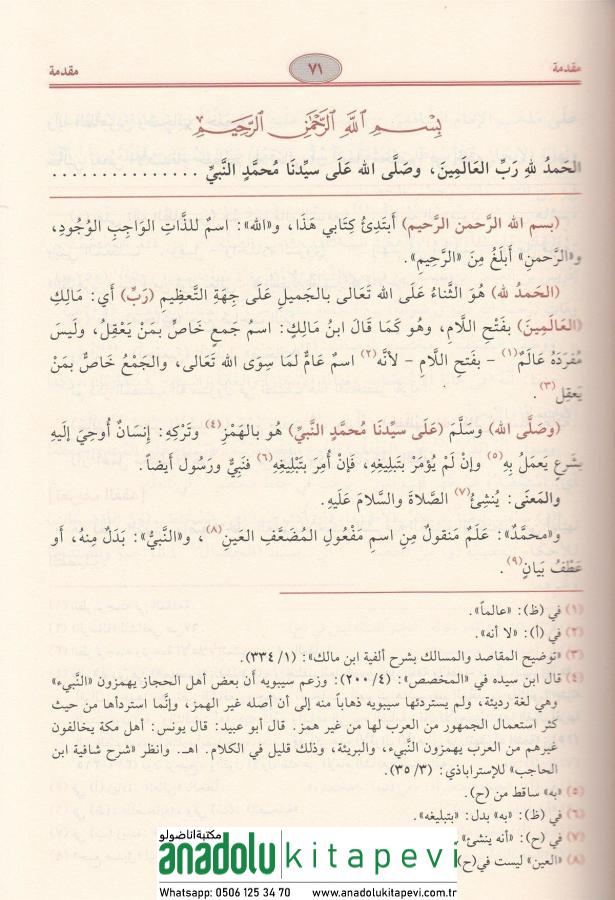 مقدمة ٧١ مقدمة
بِسْمِ اللَّهِ الرَّحْمَٰنِ الرَّحِيمِ
الحَمدُ للهِ رَبِّ العَالَمِينَ، وصَلَّى الله عَلَى سيِّدنَا محُمَّدٍ النَّبيِّ ...............
(بسم الله الرَّحمن الرَّحيم) أَبتَدِئُ كِتَابي هَذَا، و«الله»: اسمٌ للذَّاتِ الوَاجِبِ الوُجُودِ،
و«الرَّحمنِ» أَبلَغُ مِنَ «الرَّحِيمِ».
(الحَمدُ لله) هُوَ الثَّناءُ عَلَى الله تَعَالى بالجَميلِ عَلَى جِهَةِ التَّعظِيمِ (رَبِّ) أَي: مَالِكِ
(العَالَمِينَ) بفَتْحِ اللَّامِ، وهُو كَمَا قَالَ ابنُ مَالِكٍ: اسمُ جَمعٍ خَاصٌّ بمَنْ يَعْقِلُ، ولَيسَ
مُفرَدَهُ عَالَمٌ(١) - بفَتحِ اللَّامِ - لأنَّه(٢) اسمٌ عَامٌّ لمَا سِوَى الله تَعَالى، والجَمْعُ خَاصٌّ بمَنْ
يَعقِل(٣).
(وصَلَّى الله) وسَلَّمَ (عَلَى سيِّدنَا محُمَّدٍ النَّبيِّ) هُو بالهَمْزِ(٤) وتَرْكِهِ: إنسَانٌ أُوحِيَ إلَيهِ
بشَرعٍ يَعمَلُ بِهِ(٥) وإنْ لَمْ يُؤمَرْ بتَبلِيغِهِ، فَإنْ أُمِرَ بتَبلِيغِهِ(٦) فنَبيٌّ ورَسُول أَيضاً.
والمَعنَى: يُنشِئُ(٧) الصَّلاةَ والسَّلامَ عَلَيهِ.
و«محمَّدٌ»: عَلَمٌ مَنقُولٌ مِن اسمِ مَفْعُولِ المُضَعَّفِ العَينِ(٨)، و«النَّبيُّ»: بَدَلٌ مِنهُ، أَو
عَطْفُ بَيَانٍ(٩).
(١) في (ظ): «عالماً».
(٢) في (أ): «لا أنه».
(٣) «توضيح المقاصد والمسالك بشرح ألفية ابن مالك»: (١/ ٣٣٤).
(٤) قال ابن سيده في «المخصص»: (٤/ ٢٠٠): وزعم سيبويه أن بعض أهل الحجاز يهمزون «النَّبيء»
وهي لغة رديئة، ولم يستردئها سيبويه ذهاباً منه إلى أن أصله غير الهمز، وإنَّما استردأها من حيث
كثر استعمال الجمهور من العرب لها من غير همز. قال أبو عبيد: قال يونس: أهل مكة يخالفون
غيرهم من العرب يهمزون النَّبيء، والبريئة، وذلك قليل في الكلام. اهـ. وانظر «شرح شافية ابن
الحاجب» للإستراباذي: (٣/ ٣٥).
(٥) «به» ساقط من (ح).
(٦) في (ظ): «به» بدل: «بتبليغه».
(٧) في (ح): «أنه ينشئ»
(٨) «العين» ليست في(ح)
مكتبة اناضولو
anadolu kitapevi
Whatsapp: 0506 125 34 70 www.anadolukitapevi.com.tr